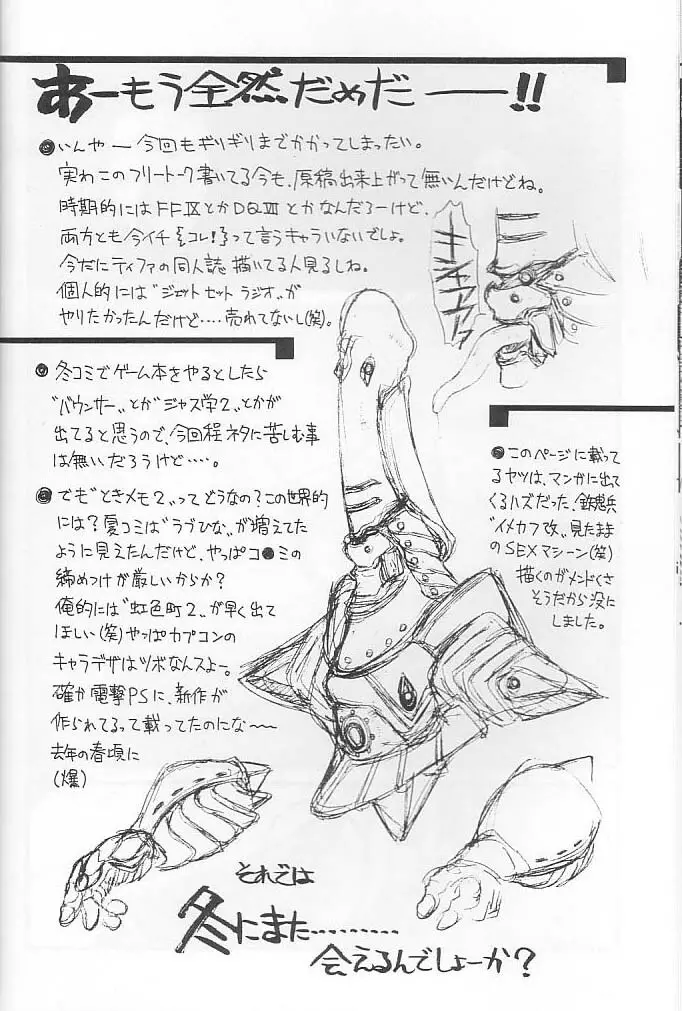 あーもう全然だめだ――!!
●いんやー今回もギリギリまでかかってしまったい。
実わこのフリートーク書いてる今も、原稿出来上がって無いんだけどね。
時期的にはFFⅨとかDQⅦとかなんだろーけど、
両方とも今イチ{コレ!}って言うキャラいないでしょ。
今だにティファの同人誌描いてる人見るしね。
個人的には"ジェットセットラジオ"が
やりたかったんだけど‥‥売れてないし(笑)。
●冬コミでゲーム本をやるとしたら
"バウンサー"とか"ジャス学2"とかが
出てると思うので、今回程ネタに苦しむ事
は無いだろうけど‥‥。
●でも"ときメモ2"ってどうなの?この世界的
には?夏コミは"ラブひな"が増えてた
ように見えたんだけど、やっぱコ●ミの
締めつけが厳しいからか?
俺的には"虹色町2"が早く出て
ほしい(笑)やっぱカプコンの
キャラデザはツボなんスよー。
確か電撃PSに、新作が
作られてるって載ってたのにな〜〜
去年の春頃に
(爆)
●このページに載って
るヤツは、マンガに出て
くるハズだった、鉄騎兵
"イメカフ改"見たまま
のSEXマシーン(笑)
描くのがメンドくさ
そうだから没に
しました。
それでは
冬にまた‥‥‥‥
会えるんでしょーか?